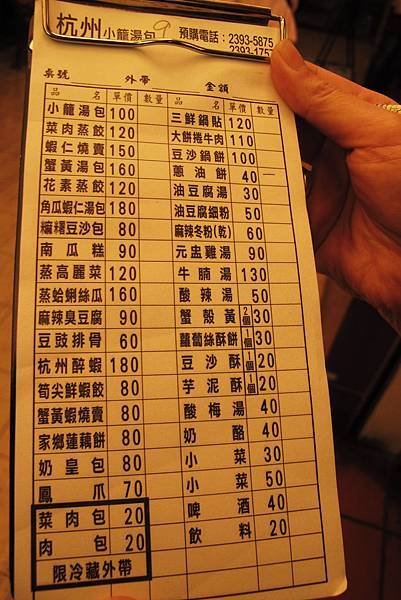 杭州小籠湯包 9 預購電話：2393-5875
2393-1757
桌號 外帶 金額
品名 單價 數量
小籠湯包 100
菜肉蒸餃 120
蝦仁燒賣 150
蟹黃湯包 160
花素蒸餃 120
角瓜蝦仁湯包 180
豆沙包 80
南瓜糕 90
蒸高麗菜 120
蒸蛤蜊絲瓜 160
麻辣臭豆腐 90
豆豉排骨 60
杭州醉蝦 180
筍尖鮮蝦餃 80
蟹黃蝦燒賣 80
家鄉蓮藕餅 80
奶皇包 80
鳳爪 70
菜肉包 20
肉包 20
限冷藏外帶
品名 單價 數量
三鮮鍋貼 120
大餅捲牛肉 110
豆沙鍋餅 100
蔥油餅 40
油豆腐湯 30
油豆腐細粉 50
麻辣冬粉(乾) 60
元盅雞湯 90
牛腩湯 130
酸辣湯 50
蟹殼黃 2個 30
蘿蔔絲酥餅 1個 30
豆沙酥 1個 20
芋泥酥 1個 20
酸梅湯 40
奶酪 40
小菜 30
小菜 50
啤酒 40
飲料 20